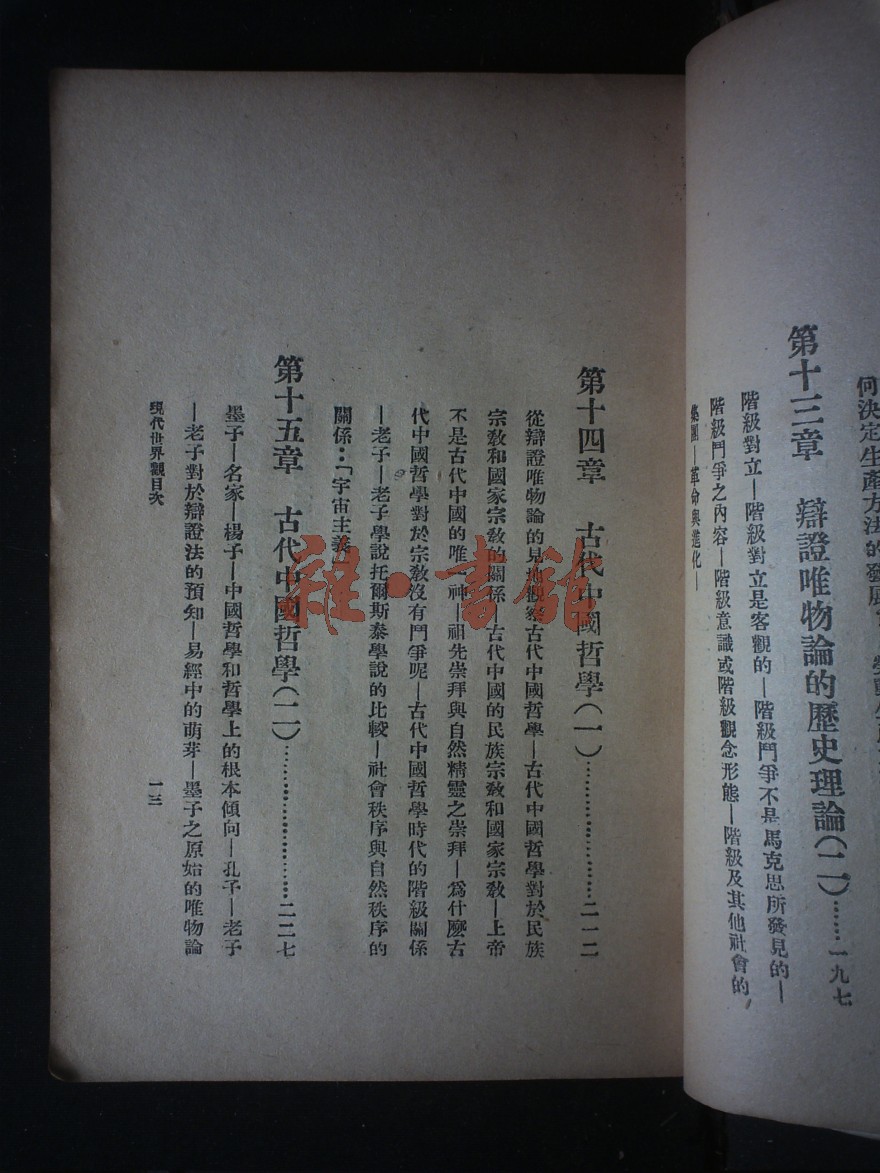 何決定生產方法的發展
第十三章 辯證唯物論的歷史理論(二)……一九七
階級對立—階級對立是客觀的—階級鬥爭不是馬克思所發見的—
階級鬥爭之內容—階級意識或階級觀念形態—階級及其他社會的
集團—革命與進化—
第十四章 古代中國哲學(一)……………………二一二
從辯證唯物論的見地觀察古代中國哲學—古代中國哲學對於民族
宗敎和國家宗敎的關係—古代中國的民族宗敎和國家宗敎—上帝
不是古代中國的唯一神—祖先崇拜與自然精靈之崇拜—爲什麽古
代中國哲學對於宗敎沒有鬥爭呢—古代中國哲學時代的階級關係
—老子—老子學說托爾斯泰學說的比較—社會秩序與自然秩序的
關係:「宇宙主義
第十五章 古代中國哲學(二)……………………二二七
墨子—名家—楊子—中國哲學和哲學上的根本傾向—孔子—老子
—老子對於辯證法的預知—易經中的萌芽—墨子之原始的唯物論
現代世界觀目次
一三
雜·書館